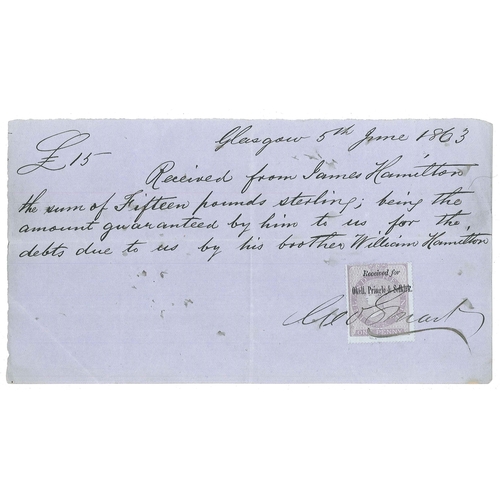 Glasgow 5th June 1863
£15
Received from James Hamilton
the sum of Fifteen pounds sterling; being the
amount guaranteed by him to us for the
debts due to us by his brother William Hamilton
Received for
Pringle &
Geo Smart